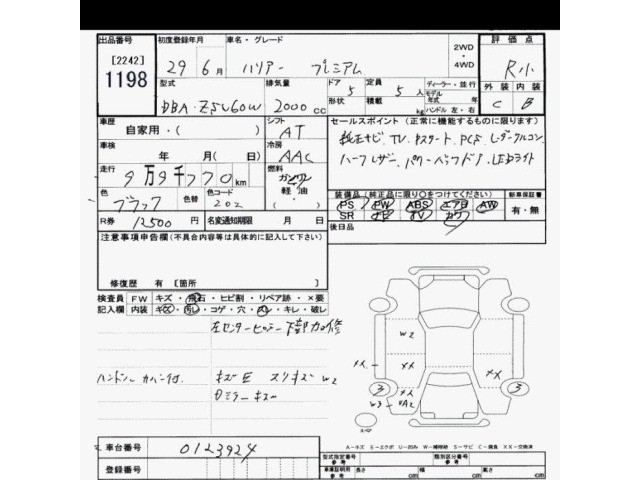 出品番号 初度登録年月 車名・グレード 2WD・4WD 評価点
[2242]
1198
29 6月 ハリアー プレミアム R小
型式 排気量 ドア 定員 ディーラー・並行 外装 内装
DBA-ZSU60W 2000cc 5 5人 モデル年式 年式
形状 積載 kg ハンドル 左・右 C B
車歴 シフト セールスポイント (正常に機能するものに限ります)
自家用・( ) AT 純正ナビ、TV、Pスタート、PCS、レーダークルコン
車検 冷房
年 月( 日) AAC ハーフレザー、パワーバックドア、LEDライト
走行 燃料
9万9千770km ガソリン・軽油
色 色替 色コード 装備品(純正品に限り○をつけてください) 新車保証書
ブラック 202 PS PW ABS エアB AW 有・無
R券 12500円 名変通知期限 月 日 SR ナビ TV カワ
注意事項申告欄(不具合内容等は具体的に記入して下さい) 後日品
修復歴 有 [箇所 ]
検査員 FW キズ・飛石・ヒビ割・リペア跡・×要
記入欄 内装 キズ・汚レ・コゲ・穴・スレ・キレ・破レ
左センターピラー下部加修
ハンドルカバー付 キズ スリキズ W2
ミラーキズ
W2
XX XX XX
3 XX 3
W3 UA2
A-キズ E-エクボ U-凹み W-補修跡 S-サビ C-腐食 XX-交換済
車台番号 0123924 型式指定番号 参考 類別区分番号 参考
登録番号 車庫証明用 参考 長さ cm 幅 cm 高さ cm